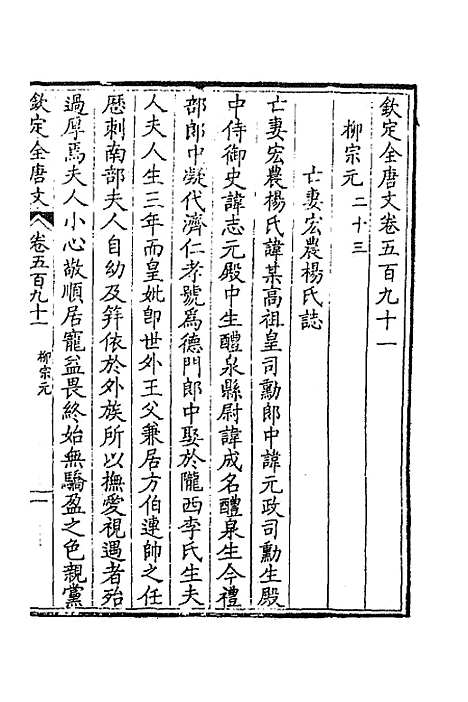 欽定全唐文卷五百九十一
柳宗元二十三
亡妻宏農楊氏誌
亡妻宏農楊氏諱某高祖皇司勳郎中諱元政司勳生殿
中侍御史諱志元殿中生醴泉縣尉諱成名醴泉生今禮
部郎中凝代濟仁孝號爲德門郎中娶於隴西李氏生夫
人夫人生三年而皇妣卽世外王父兼居方伯連帥之任
歷刺南部夫人自幼及笄依於外族所以撫愛視遇者殆
過厚焉夫人小心敬順居寵益畏終始無驕盈之色親黨
欽定全唐文 卷五百九十一 柳宗元 一